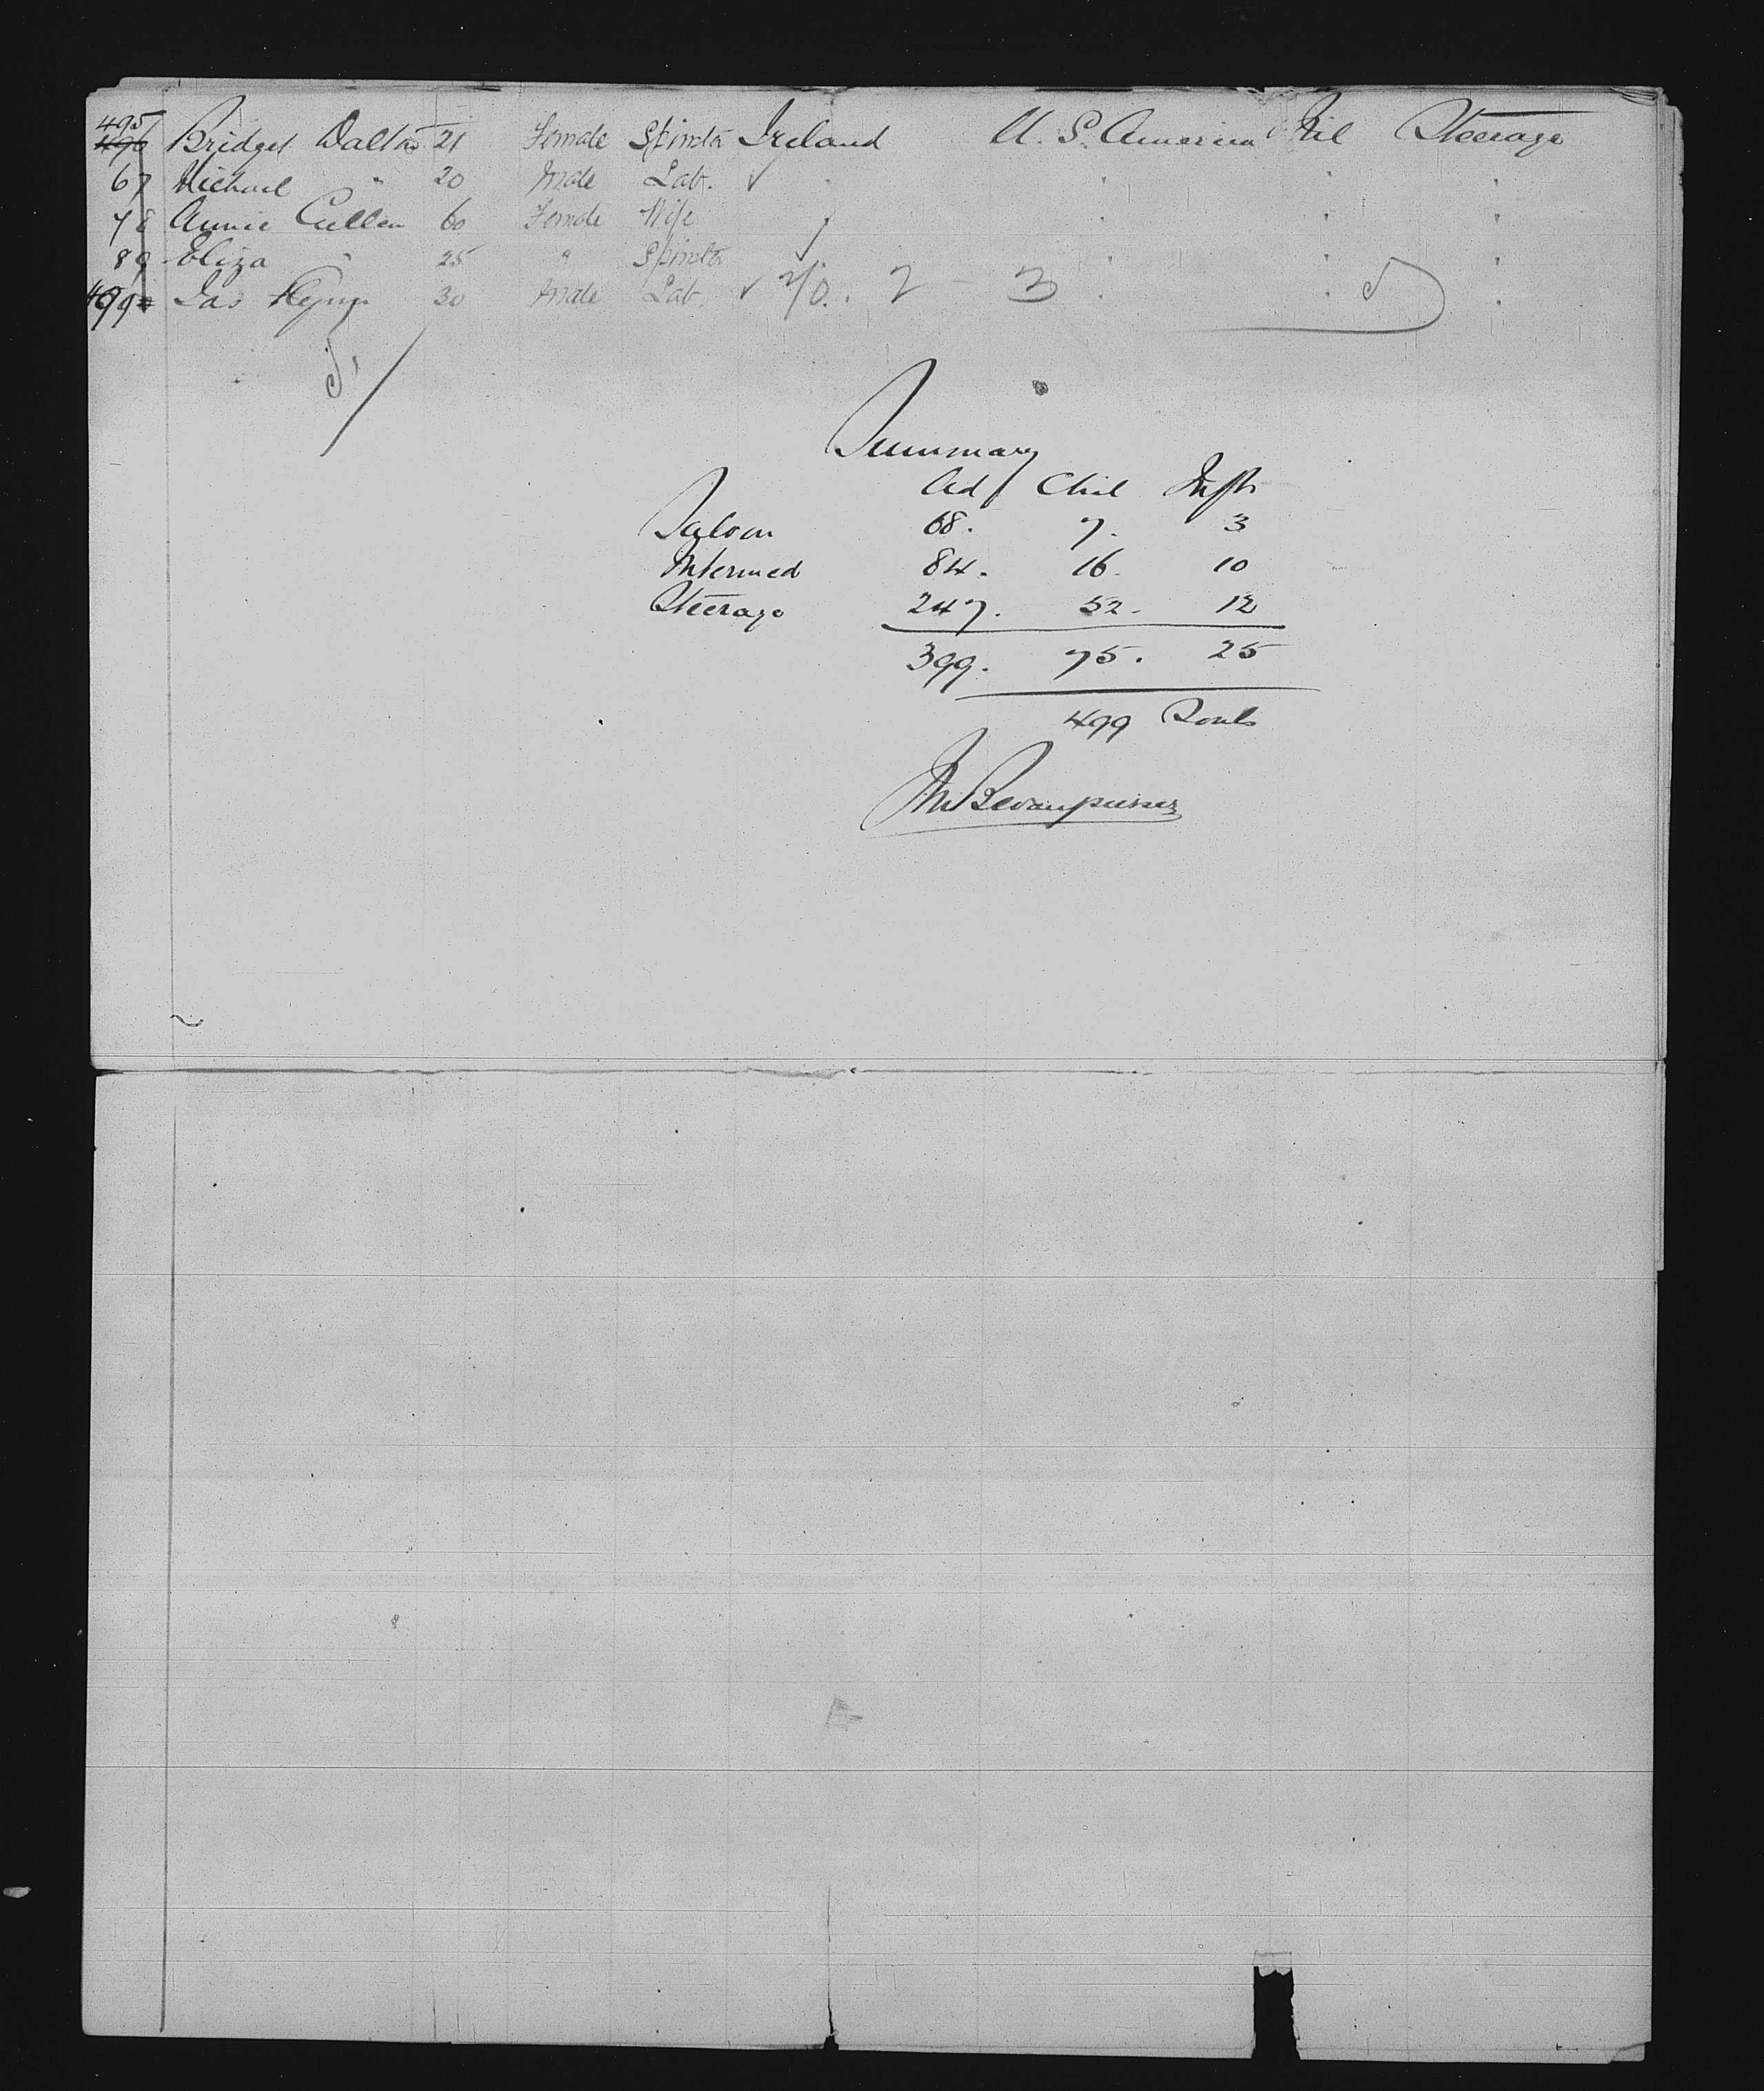 495
496 Bridget Dalton 21 Female Spinstr Ireland U. S. America Nil Steerage
67 Michael " 20 Male Lab. ✓
78 Annie Cullen 60 Female Wife
89 Eliza " 25 " Spinstr ✓
499 Jas 30 Male Lab. ✓ 2 3 5
5
Summary
Ad Chil Infts
Saloon 68. 7. 3
Intermed 84. 16. 10
Steerage 247. 52. 12
399. 75. 25
499 Souls
purser